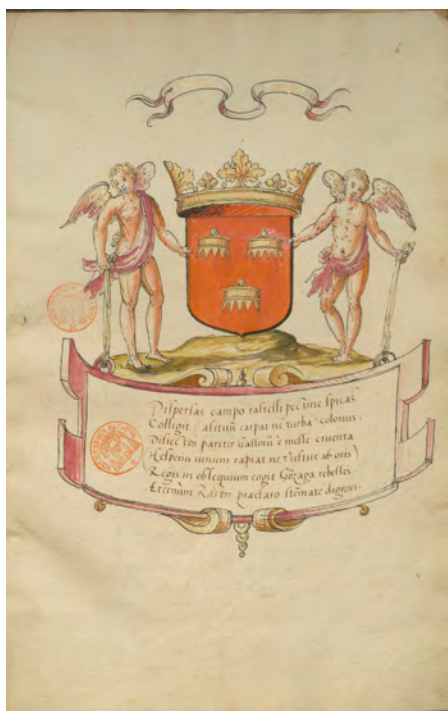 6
Dispersas campo rastelli pectine spicas
Colligit, alituū carpat ne turba, colonus:
Disiectos pariter Gallorū è messe cruenta
(Hesperiis veniens rapiat ne Vultur ab oris)
Regis in obsequium cogit Gōzaga rebelles.
Æternùm Rastri præclaro stēmate dignus.